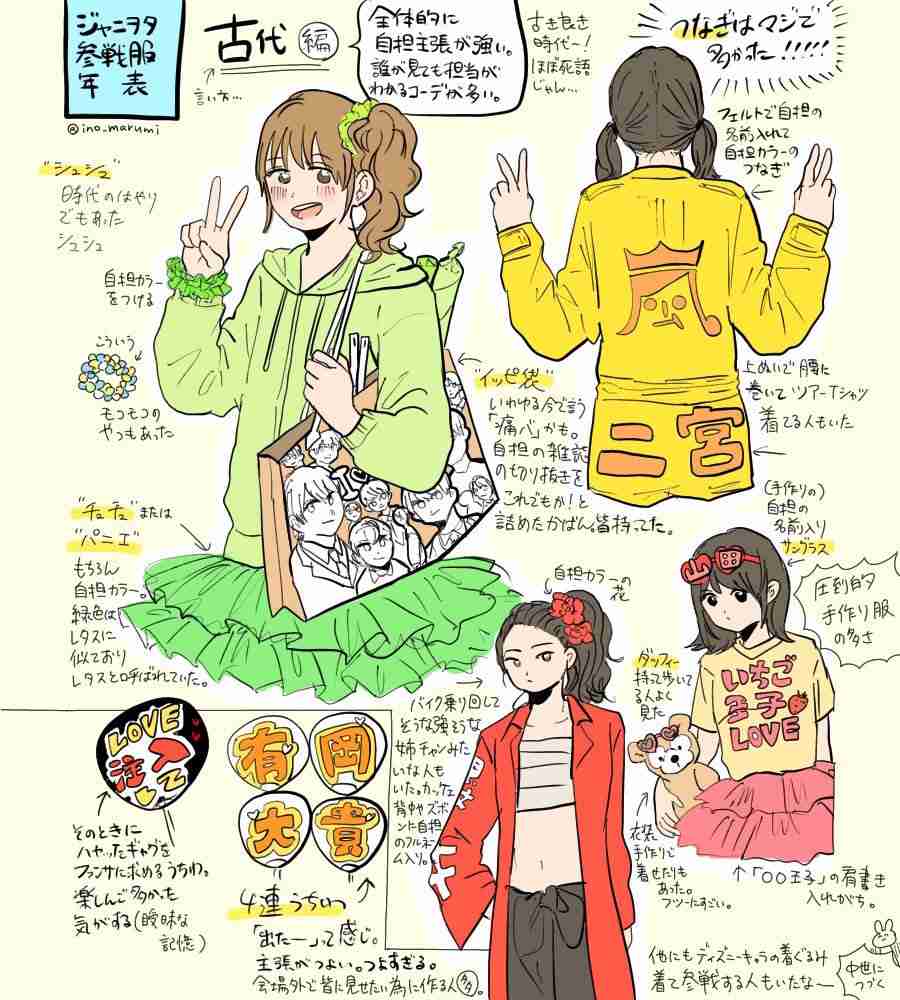 ジャニヲタ
参戦服
年表
@ino_marumi
古代編
言い方…
全体的に
自担主張が強い。
誰が見ても担当が
わかるコーデが多い。
古き良き
時代〜!
ほぼ死語
じゃん…
つなぎはマジで
多かった!!!!!
フェルトで自担の
名前入れて
自担カラーの
つなぎ
"シュシュ"
時代のはやり
でもあった
シュシュ
自担カラー
をつける
こういう
モコモコの
やつもあった
"イッピ袋"
いわゆる今で言う
「痛バ」かも。
自担の雑誌
の切り抜きを
これでもか!と
詰めたかばん。皆持ってた。
上ぬいで腰に
巻いてツアーTシャツ
着てる人もいた
二宮
"チュチュ"または
"パニエ"
もちろん
自担カラー。
緑色は
レタスに
似ており
レタスと呼ばれていた。
(手作りの)
自担の
名前入り
サングラス
圧倒的
手作り服
の多さ
自担カラーの
花
山田
ダッフィー
持って歩いて
る人よく
見た
いちご
王子
LOVE
バイク乗り回して
そうな強そうな
姉チャンみた
いな人も
いた。カッケェ
背中やズボ
ンに自担
のフルネー
ム入り。
LOVE
注入
有岡
大貴
そのときに
ハヤったギャグを
ファンサに求めるうちわ。
楽しんご多かった
気がする(曖昧な
記憶)
4連うちわ
「出たー」って感じ。
主張がつよい。つよすぎる。
会場外で皆に見せたい為に作る人多。
衣装
手作りで
着せたりも
あった。
フツーにすごい。
↑「〇〇王子」の肩書き
入れがち。
他にもディズニーキャラの着ぐるみ
着て参戦する人もいたな〜
中世に
つづく